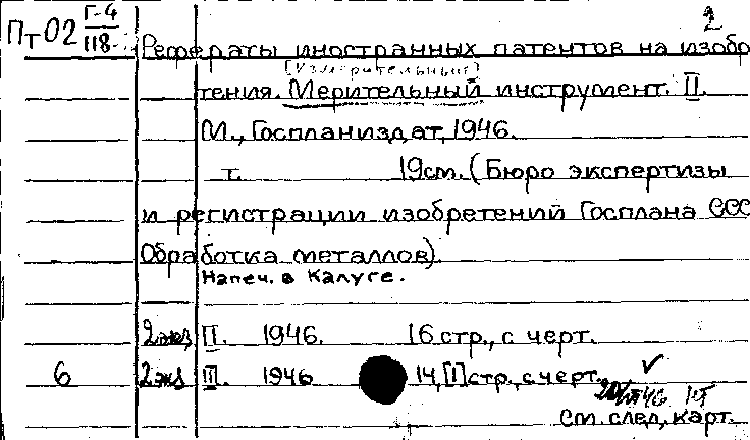 2
Пт02 Г-4/118
Рефераты иностранных патентов на изобр
[Измерительный]
тения. Мерительный инструмент. II.
М., Госпланиздат, 1946.
т. 19 cm. (Бюро экспертизы
и регистрации изобретений Госплана ССС
Обработка металлов).
Напеч. в Калуге.
2 экз II. 1946. 16 стр., с черт.
6 2 экз III. 1946 14, [1] стр., с черт.
см. след. карт.